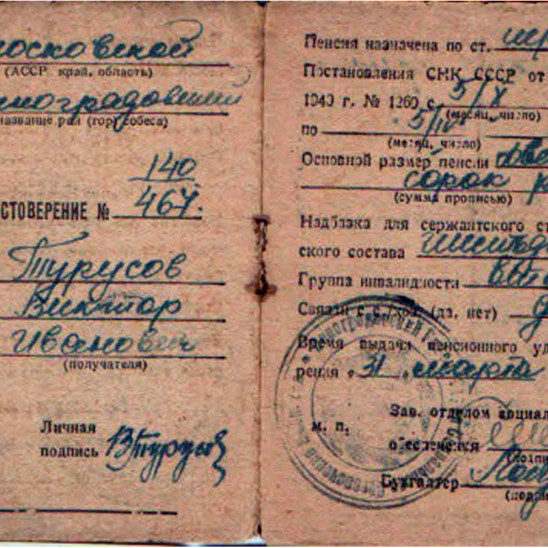 московской
(АССР, край, область)
140
467.
СТОВЕРЕНИЕ №
Турусов
Виктор
Иванович
(получателя)
Личная
подпись
Пенсия назначена по ст.
Постановления СНК СССР от
1940 г. № 1269 с 5/X
(месяц, число)
по 5/IV
(месяц, число)
Основной размер пенсии две
сорок р
(сумма прописью)
Надбавка для сержантского ст
ского состава шестьде
Группа инвалидности
Связь с с./хоз. (да, нет)
Время выдачи пенсионного уд
рения « 31 » марта
Зав. отделом социал
м. п.
обеспечения
Бухгалтер